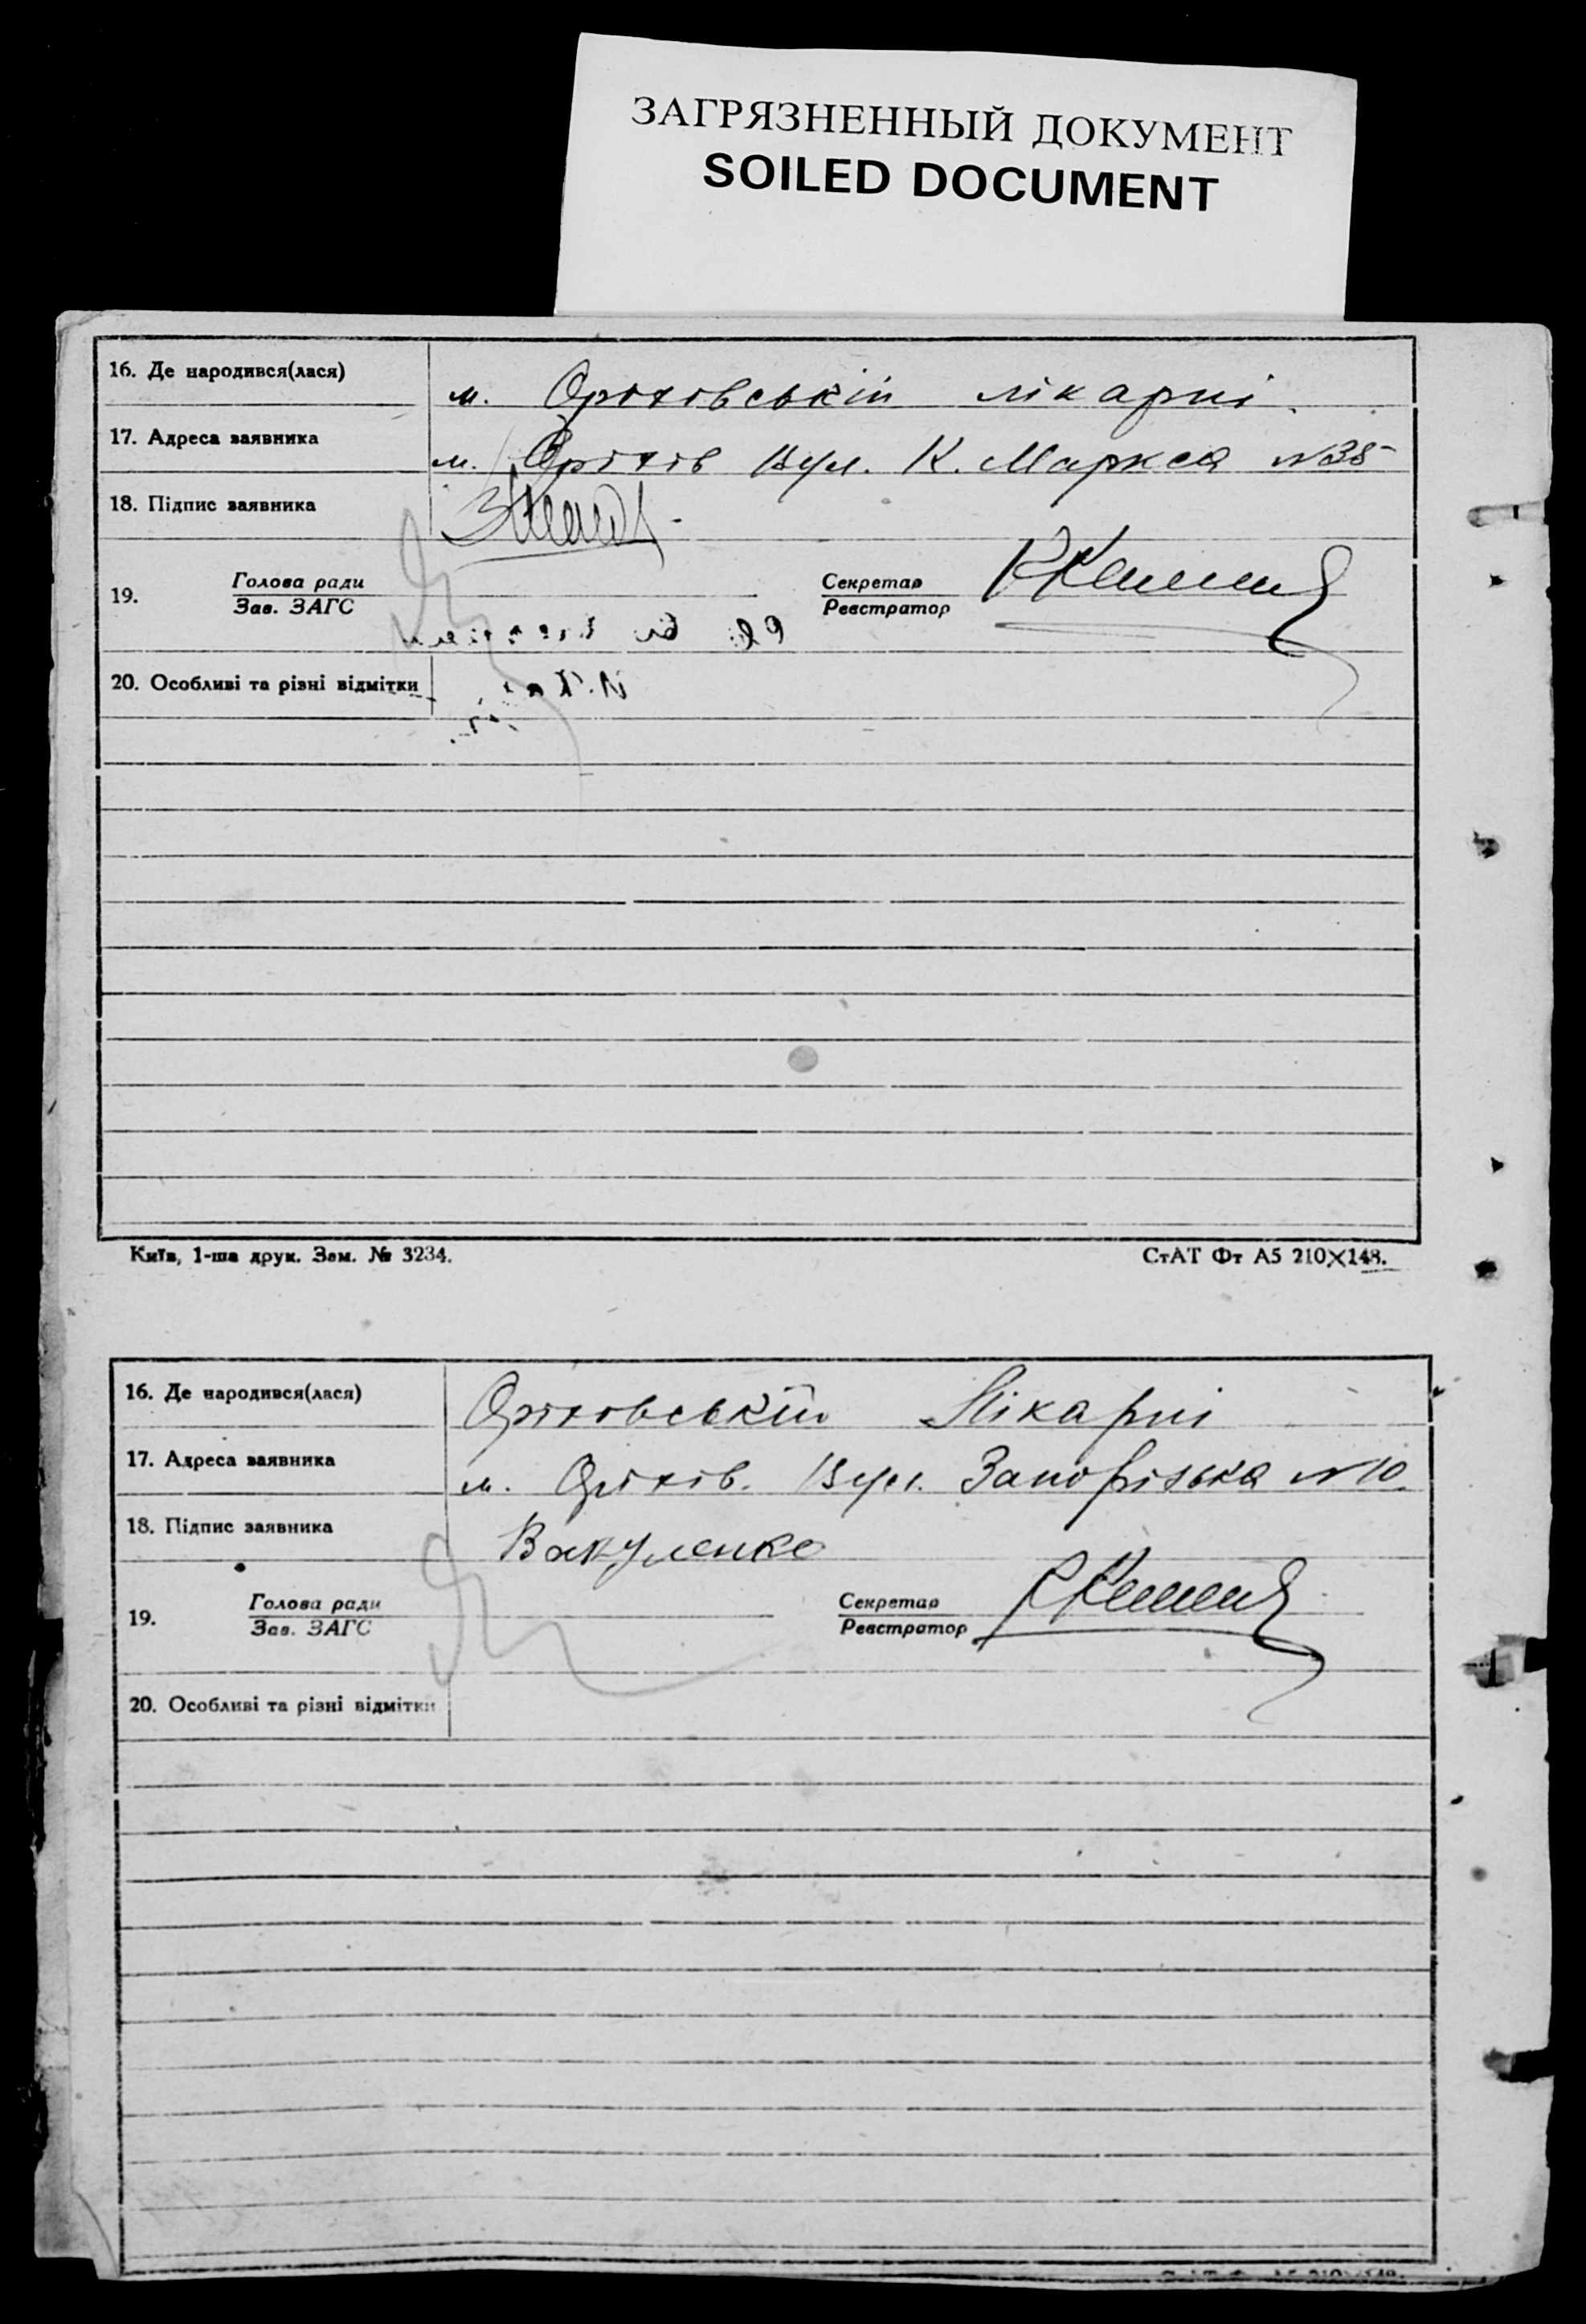 ЗАГРЯЗНЕННЫЙ ДОКУМЕНТ
SOILED DOCUMENT
16. Де народився(лася) м. Оріховській лікарні.
17. Адреса заявника м. Оріхів Вул. К. Маркса №38
18. Підпис заявника
19. Голова ради Секретар
Зав. ЗАГС Реєстратор
20. Особливі та різні відмітки
Київ, 1-ша друк. Зам. № 3234. СтАТ Фт А5 210×148.
16. Де народився(лася) Оріховській Лікарні
17. Адреса заявника м. Оріхів. Вул. Запорізька №10.
18. Підпис заявника Вакуленко
19. Голова ради Секретар
Зав. ЗАГС Реєстратор
20. Особливі та різні відмітки